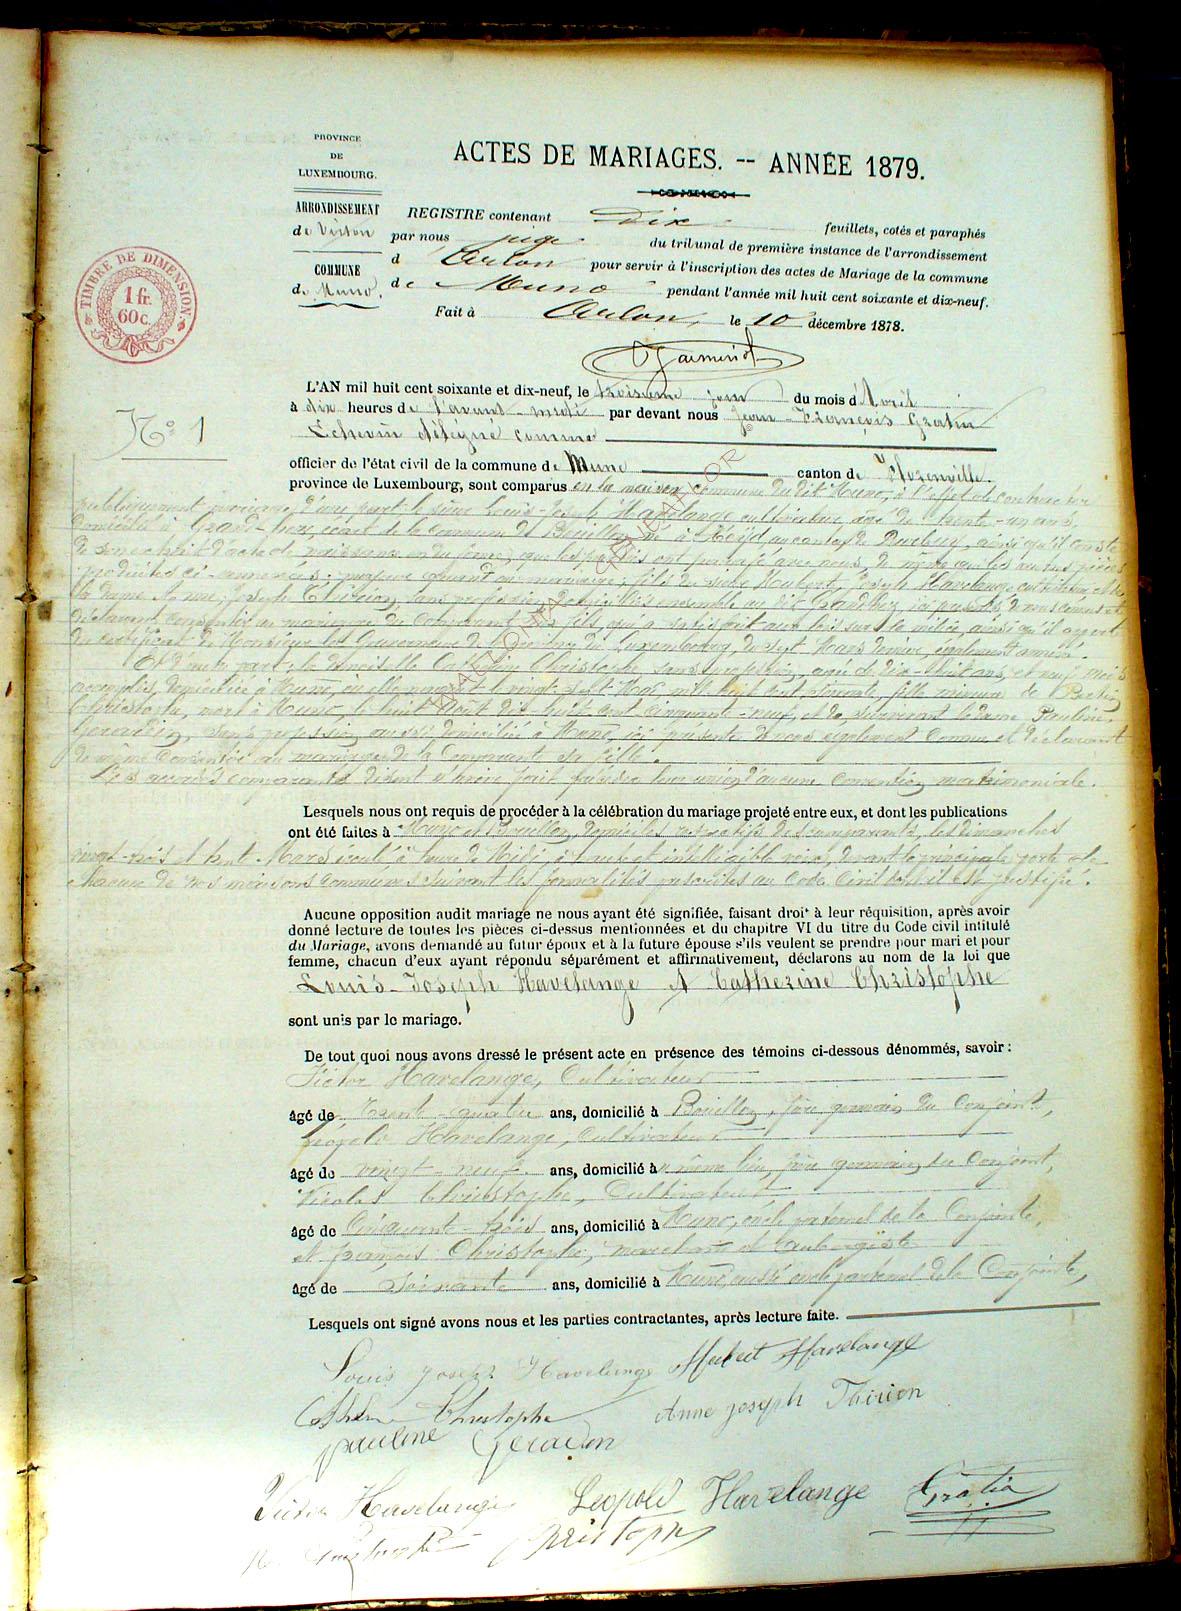 PROVINCE
DE
LUXEMBOURG.
ARRONDISSEMENT
de Virton
COMMUNE
de Muno.
TIMBRE DE DIMENSION
1 fr.
60 c.
ACTES DE MARIAGES. -- ANNÉE 1879.
REGISTRE contenant Dix feuillets, cotés et paraphés
par nous juge du tribunal de première instance de l'arrondissement
d'Arlon pour servir à l'inscription des actes de Mariage de la commune
de Muno pendant l'année mil huit cent soixante et dix-neuf.
Fait à Arlon, le 10 décembre 1878.
N° 1
L'AN mil huit cent soixante et dix-neuf, le troisième jour du mois d'Avril
à dix heures de l'avant-midi par devant nous Jean-François Gratia
Echevin délégué comme
officier de l'état civil de la commune de Muno canton de Florenville
province de Luxembourg, sont comparus en la maison commune du dit Muno, à l'effet de contracter
publiquement mariage, d'une part le sieur Louis-Joseph Havelange, cultivateur, âgé de trente-un ans,
domicilié à Grand-hez, écart de la commune de Bouillon, né à Heyd au canton de Durbuy, ainsi qu'il conste
de son extrait d'acte de naissance en due forme, que les parties ont paraphé avec nous, de même que les autres pièces
produites ci-annexées; majeur quant au mariage; fils du sieur Hubert-Joseph Havelange, cultivateur, et de
la dame Anne-Joseph Thirion, sans profession, domiciliés ensemble au dit Grandhez, ici présents, de nous connus et
déclarant consentir au mariage du comparant leur fils, qui a satisfait aux lois sur la milice, ainsi qu'il appert
du certificat de Monsieur le Gouverneur de la province du Luxembourg, du sept Mars dernier, également annexé.
Et d'autre part, la demoiselle Catherine Christophe, sans profession, âgée de dix-huit ans, et neuf mois
accomplis, domiciliée à Muno, où elle naquit le vingt-sept Mai mil huit cent soixante, fille mineure de
Christophe, mort à Muno, le huit Août dix-huit cent cinquante-neuf, et de, survivant la dame Pauline
Geradin, sans profession, aussi domiciliée à Muno, ici présente de nous également connue et déclarant
de même consentir au mariage de la comparante sa fille.
Les accords comparants disent n'avoir fait précéder leur union d'aucune convention matrimoniale.
Lesquels nous ont requis de procéder à la célébration du mariage projeté entre eux, et dont les publications
ont été faites à Muno et Bouillon, domiciles respectifs des comparants, les dimanches
vingt-trois et trente Mars écoulé à l'heure de Midi, à haute et intelligible voix, devant la principale porte de
chacune de nos maisons communes suivant les formalités prescrites au Code Civil dont il est justifié.
Aucune opposition audit mariage ne nous ayant été signifiée, faisant droit à leur réquisition, après avoir
donné lecture de toutes les pièces ci-dessus mentionnées et du chapitre VI du titre du Code civil intitulé
du Mariage, avons demandé au futur époux et à la future épouse s'ils veulent se prendre pour mari et pour
femme, chacun d'eux ayant répondu séparément et affirmativement, déclarons au nom de la loi que
Louis-Joseph Havelange et Catherine Christophe
sont unis par le mariage.
De tout quoi nous avons dressé le présent acte en présence des témoins ci-dessous dénommés, savoir :
Victor Havelange, Cultivateur
âgé de Trente-quatre ans, domicilié à Bouillon, frère germain du Conjoint,
Léopold Havelange, Cultivateur
âgé de vingt-neuf ans, domicilié à même lieu, frère germain du Conjoint,
Nicolas Christophe, Cultivateur
âgé de Cinquante-trois ans, domicilié à Muno, oncle paternel de la Conjointe,
et François Christophe, marchand et aubergiste
âgé de Soixante ans, domicilié à Muno, aussi oncle paternel de la Conjointe,
Lesquels ont signé avons nous et les parties contractantes, après lecture faite.
Louis Joseph Havelange Hubert Havelange
Christophe Anne Joseph Thirion
pauline Geradon
Victor Havelange Leopold Havelange Gratia
N. Christophe Christophe